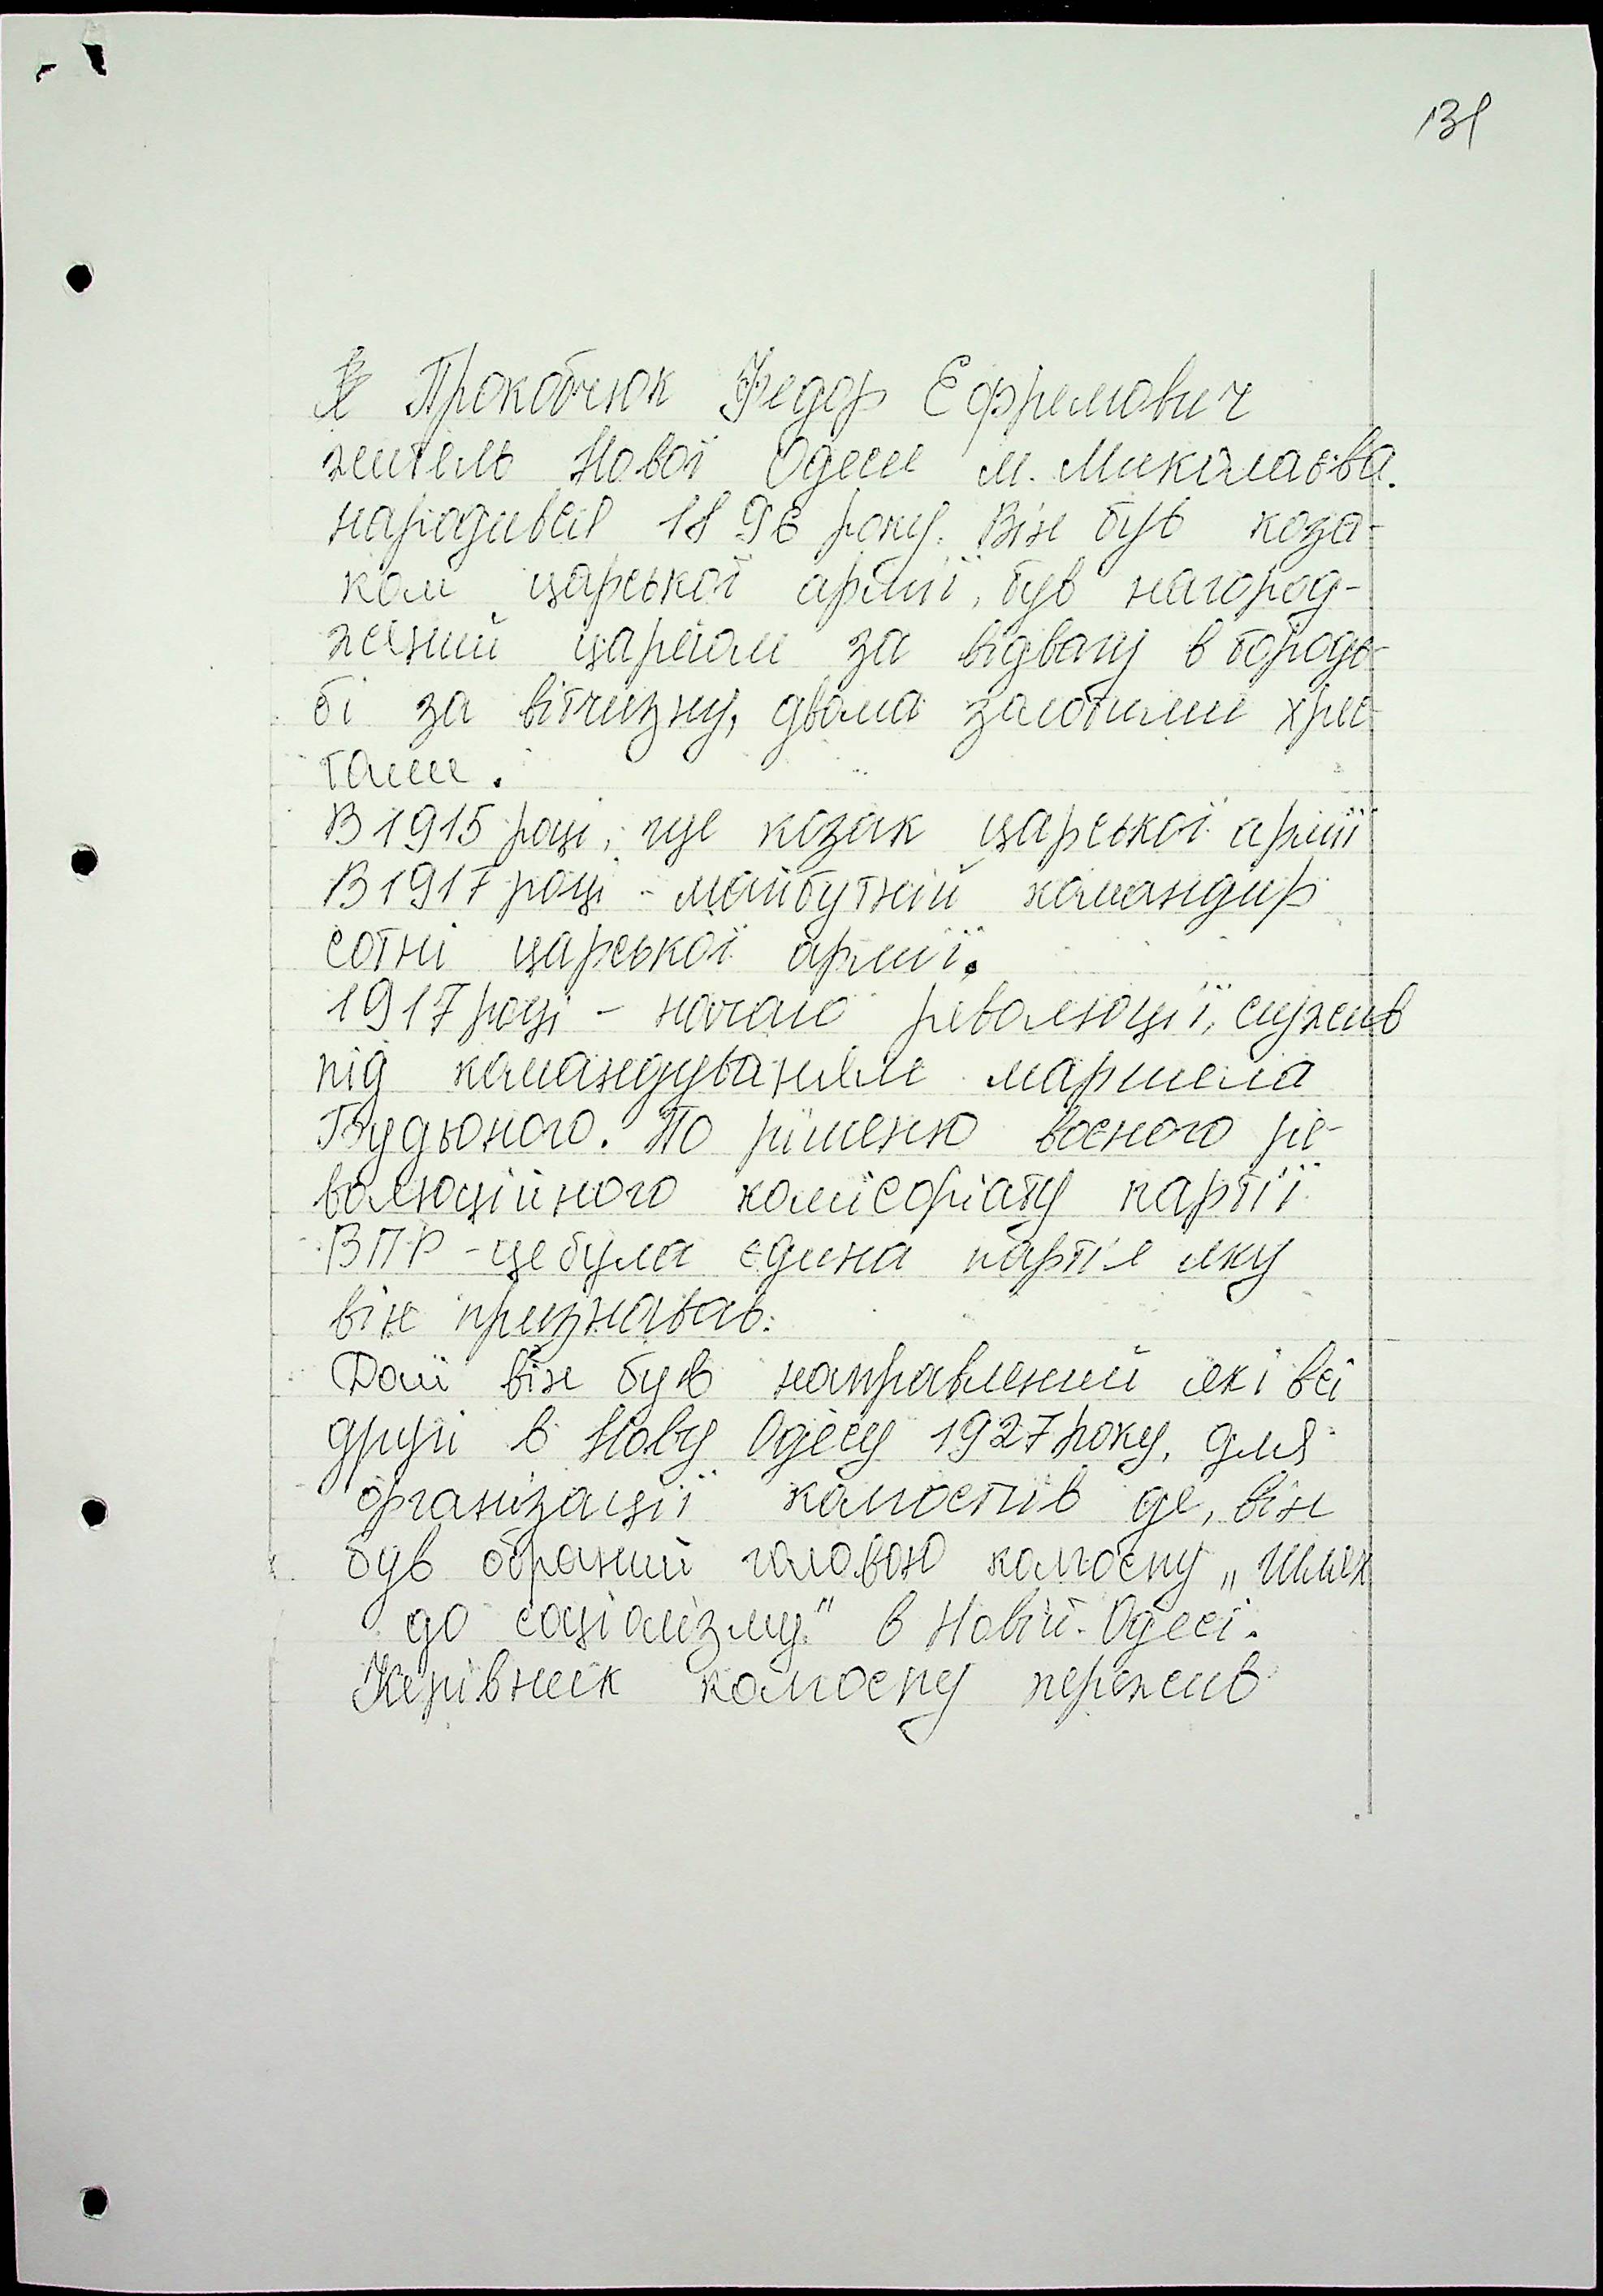 131
Я Прокобчюк Федор Ефремович
житель Нової Одеси м. Миколаєва.
народився 1896 року. Він був коза-
ком царської армії, був нагород-
жений царйом за відвагу в бородь-
бі за вітчизну, двома золотими хрес-
тами.
В 1915 році, це козак царської армії
В 1917 році - майбутній командир
сотні царської армії.
1917 році - начало революції, служив
під командуванням маршела
Будьоного. По рішеню воєного ре-
волюційного комісоріату партії
ВПР - це була єдина партія яку
він признавав.
Далі він був направлений як і всі
другі в Нову Одесу 1927 року, для
організації колгоспів де, він
був обраний головою колгоспу „Шлях
до соціалізму" в Новій Одесі.
Керівник колгоспу пережив